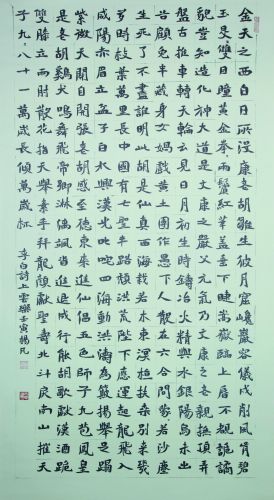 金天之西白日所沒康老胡雛生彼月窟巉巖容儀戍削風骨碧
玉炅炅雙目瞳黃金拳拳兩鬢紅華蓋垂下睫嵩嶽臨上唇不覩詭譎
貌豈知造化神大道是文康之嚴父元氣乃文康之老親撫頂弄
盤古推車轉天輪云見日月初生時鑄冶火精與水銀陽烏未出
谷顧兔半藏身女媧戲黃土團作愚下人散在六合間濛濛若沙塵
生死了不盡誰明此胡是仙真西海栽若木東溟植扶桑別來幾
多時枝葉萬里長中國有七聖半路頹洪荒陛下應運起龍飛入
咸陽赤眉立盆子白水興漢光叱咤四海動洪濤為簸揚舉足蹋
紫微天關自開張老胡感至德東來進仙倡五色師子九苞鳳凰
是老胡雞犬鳴舞飛帝鄉淋漓颯沓進退成行能胡歌獻漢酒跪
雙膝立兩肘散花指天舉素手拜龍顏獻聖壽北斗戾南山摧天
子九々八十一萬歲長傾萬歲杯 李白詩上雲樂壬寅楊凡